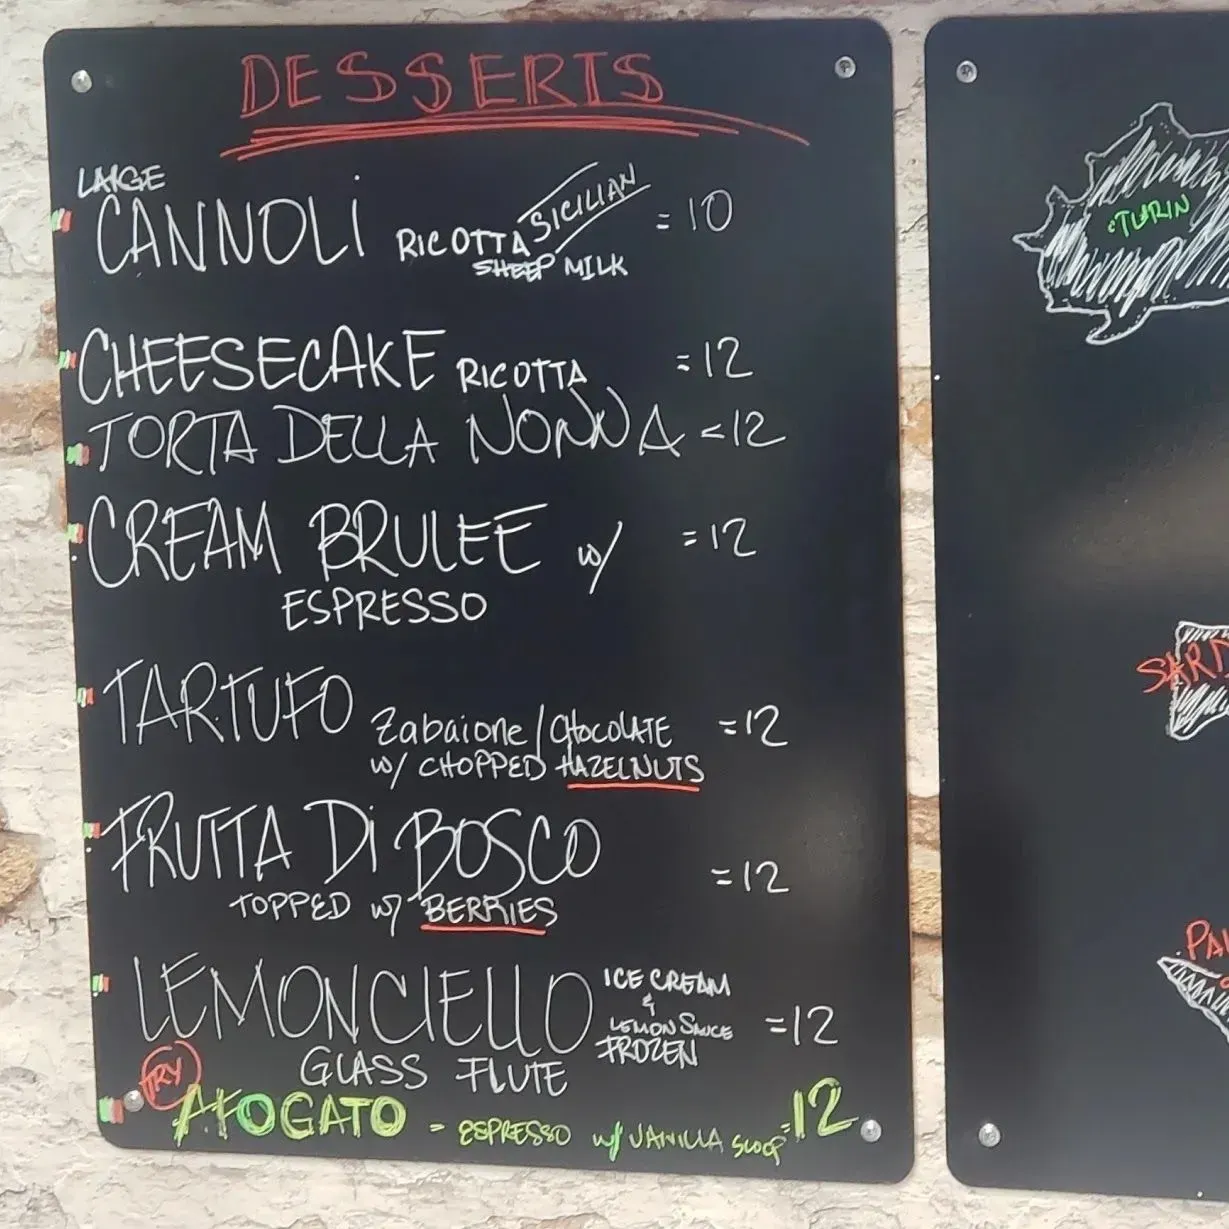 DESSERTS
LARGE
CANNOLI RICOTTA SICILIAN = 10
SHEEP MILK
CHEESECAKE RICOTTA = 12
TORTA DELLA NONNA = 12
CREAM BRULEE w/ = 12
ESPRESSO
TARTUFO Zabaione/CHOCOLATE = 12
w/ CHOPPED HAZELNUTS
FRUTTA Di BOSCO = 12
TOPPED w/ BERRIES
LEMONCIELLO ICE CREAM
&
LEMON SAUCE = 12
FROZEN
GLASS FLUTE
TRY
AFOGATO = ESPRESSO w/ VANILLA SCOOP = 12
TURIN
SARD
PAL